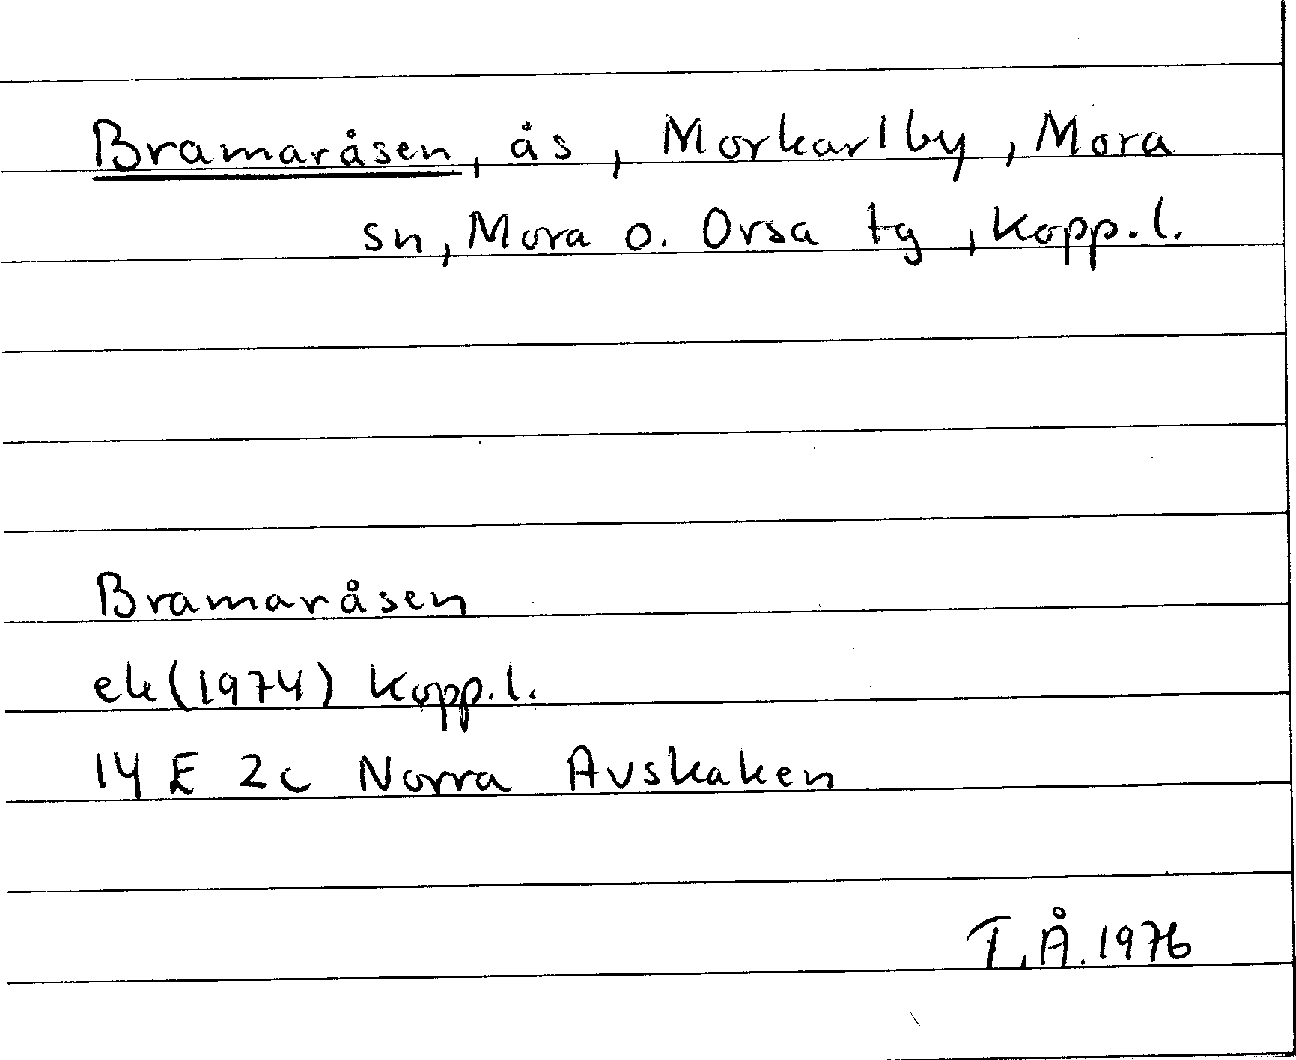 Bramaråsen, ås, Morkarlby, Mora
sn, Mora o. Orsa tg, Kopp.l.
Bramaråsen
ek(1974) Kopp.l.
14 E 2c Norra Avskaken
T.Å. 1976